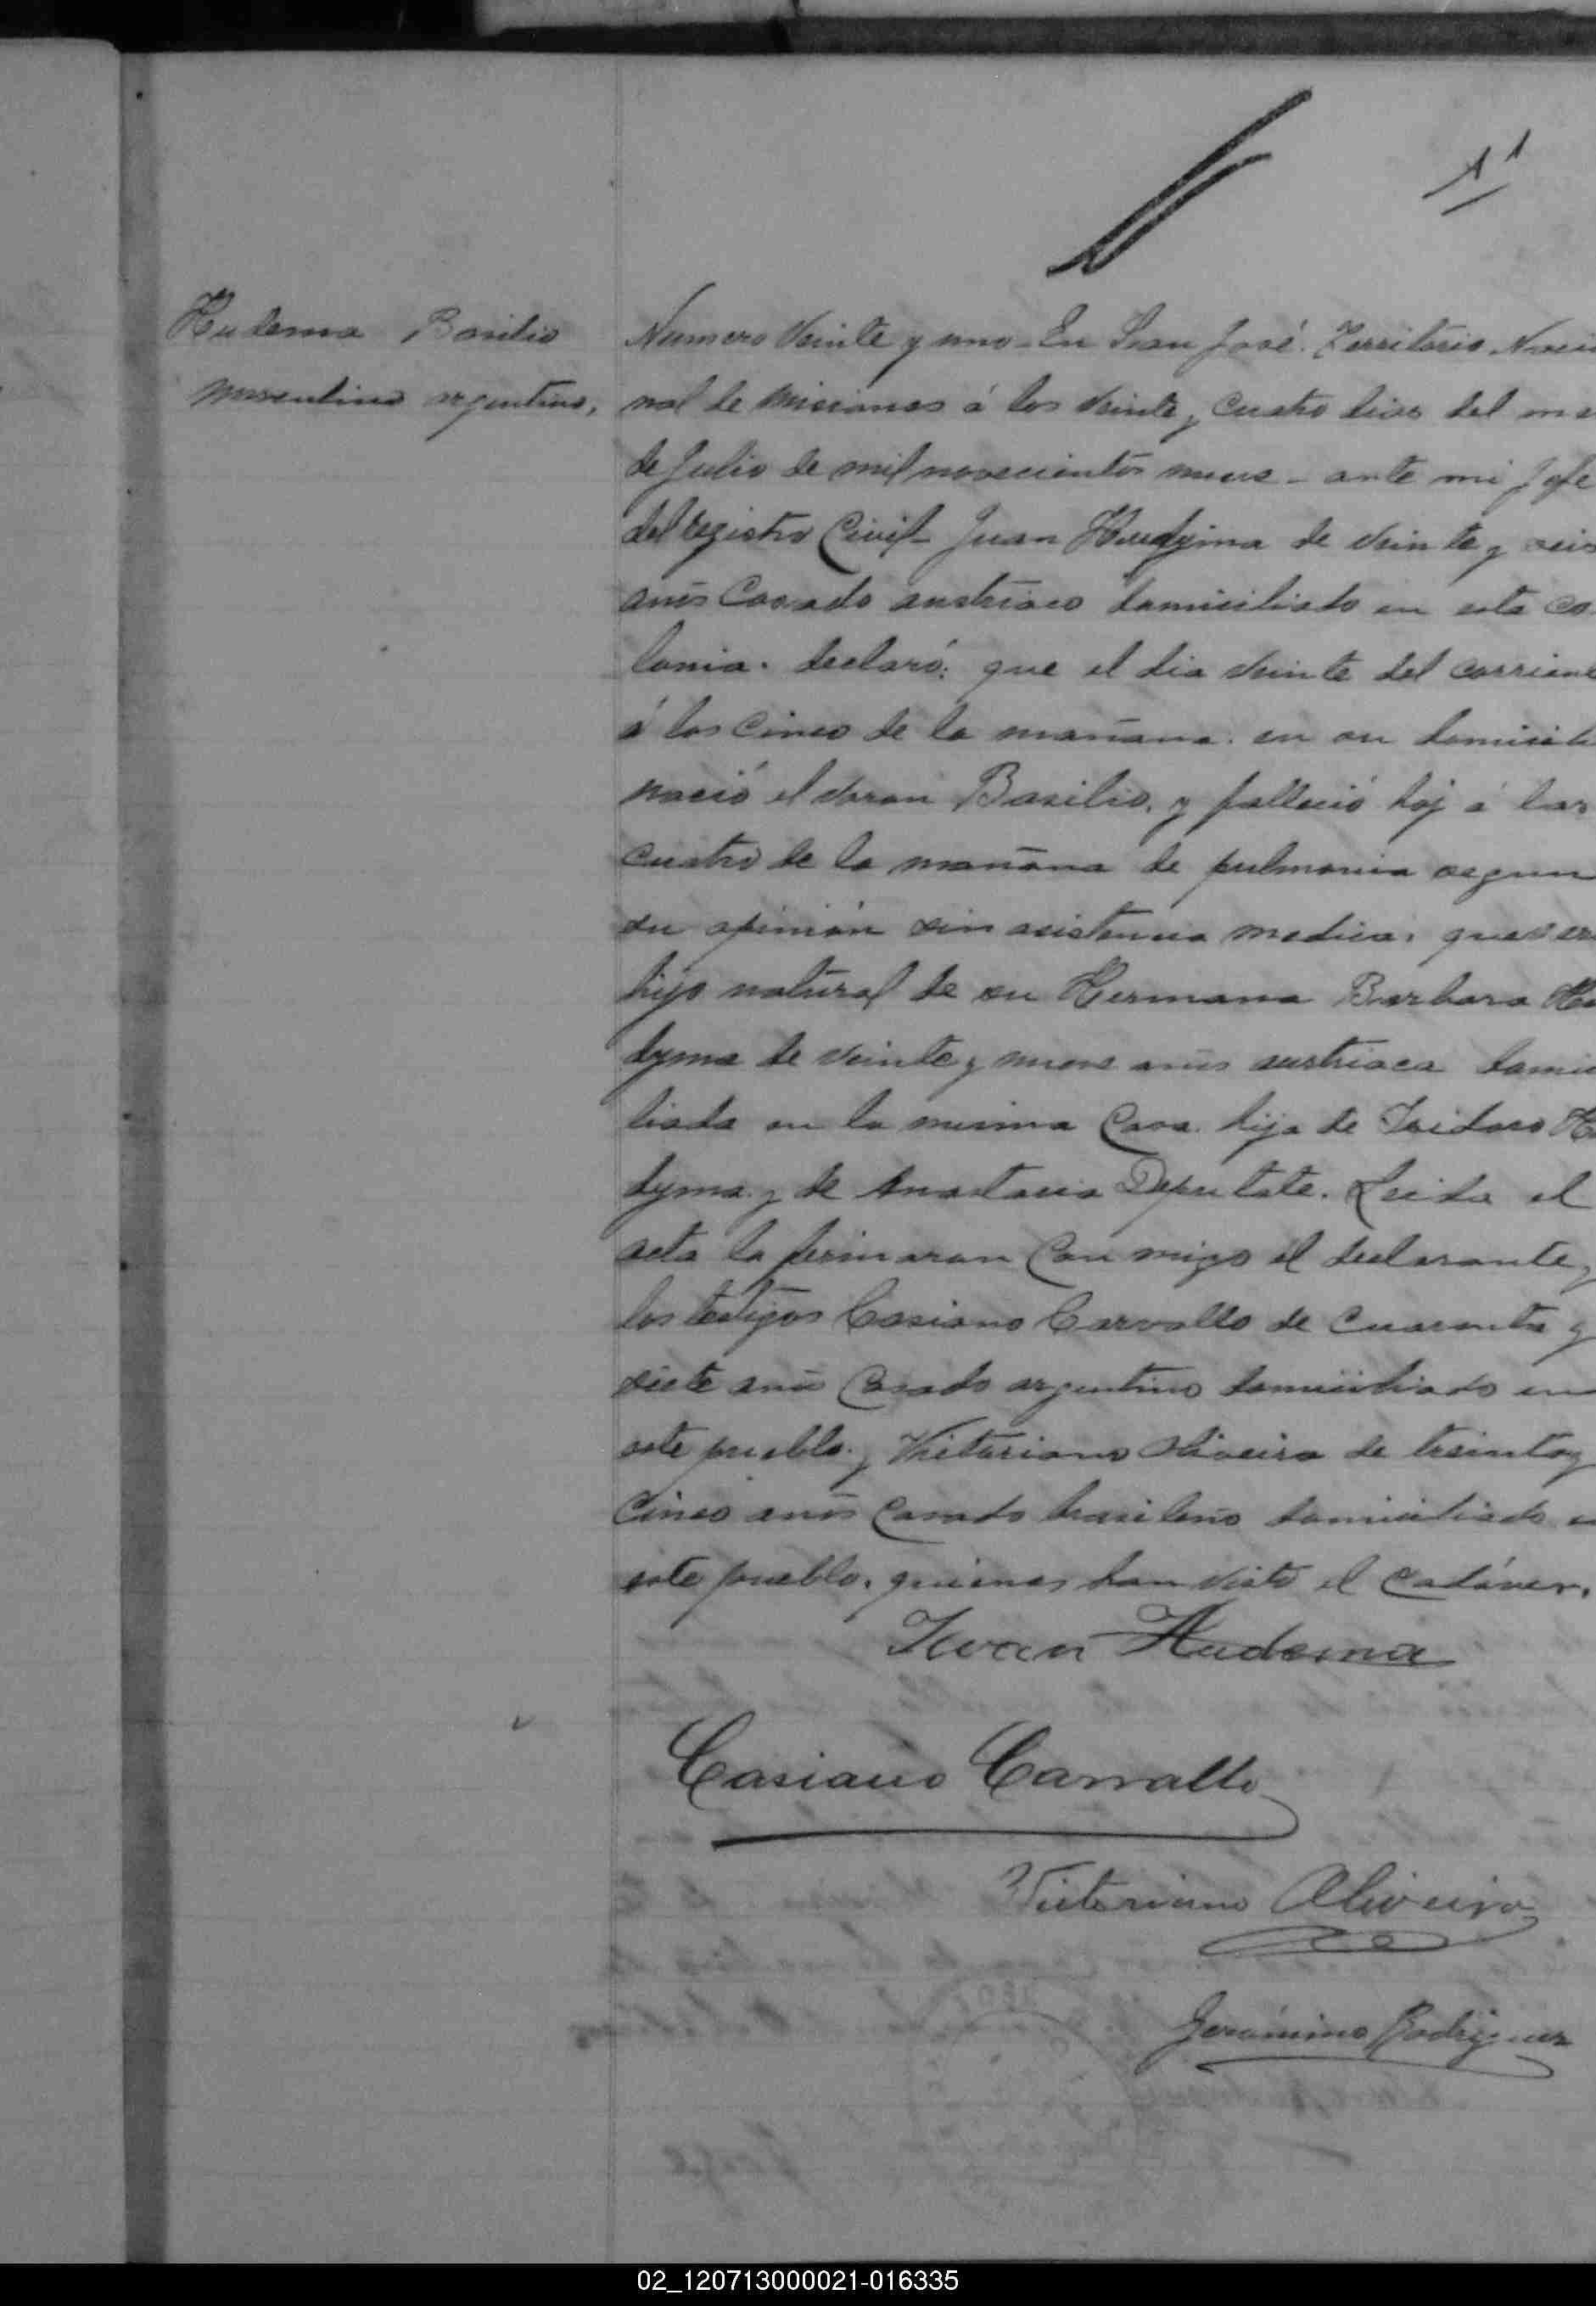 11
Hudema Basilio
masculino argentino,
Numero Veinte y uno - En San José. Territorio Nacio
nal de Misiones á los veinte y cuatro dias del me
de Julio de mil novecientos nueve - ante mi Jefe
del registro Civil - Juan Hudyma de veinte y seis
anõs Casado austriaco domiciliado en esta co
lonia. declaró: que el dia veinte del corrient
á las Cinco de la mañana. en su domicili
nació el varon Basilio, y falleció hoy á las
cuatro de la mañana de pulmonia segun
su opinión sin asistencia medica, que es er
hijo natural de su Hermana Barbara Hu
dyma de veinte y nueve anõs austriaca domici
liada en la misma Casa. hija de Isidoro Hu
dyma. y de Anastacia Deputate. Leida el
acta la firmaron Con migo el declarante,
los testigos Casiano Carvallo de Cuarenta y
siete anõs Casado argentino domiciliado en
este pueblo. y Victoriano Oliveira de treinta y
Cinco anõs Casado brasileño domiciliado e
este pueblo. quienes han visto el Cadáver.
Iwan Hudema
Casiano Carvallo
Victoriano Oliveira
Gerónimo Rodriguez
02_120713000021-016335